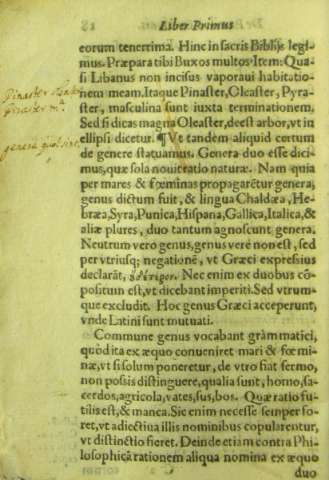 Liber Primus
eorum tenerrima. Hinc in sacris Biblijs legi-
mus. Præpara tibi Buxos multos. Item: Qua-
si Libanus non incisus vaporaui habitatio-
nem meam. Itaque Pinaster, Oleaster, Pyra-
ster, masculina sunt iuxta terminationem.
Sed si dicas magna Oleaster, deest arbor, vt in
ellipsi dicetur. ¶ Vt tandem aliquid certum
de genere statuamus. Genera duo esse dici-
mus, quæ sola nouit ratio naturæ. Nam quia
per mares & fœminas propagarētur genera,
genus dictum fuit, & lingua Chaldæa, He-
bræa, Syra, Punica, Hispana, Gallica, Itala, &
aliæ plures, duo tantum agnoscunt genera.
Neutrum vero genus, genus vere non est, sed
per vtriusq; negationē, vt Græci expressius
declarāt, οὐδέτερον. Nec enim ex duobus cō-
positum est, vt dicebant imperiti. Sed vtrum-
que excludit. Hoc genus Græci acceperunt,
vnde Latini sunt mutuati.
Commune genus vocabant grāmmatici,
quòd ita ex æquo conueniret mari & fœmi-
næ, vt si solum poneretur, de vtro fiat sermo,
non possis distinguere, qualia sunt, homo, sa-
cerdos, agricola, vates, sus, bos. Quæ ratio fu-
tilis est, & manca. Sic enim necesse semper fo-
ret, vt adiectiua illis nominibus copularentur,
vt distinctio fieret. Deinde etiam contra Phi-
losophicā rationem aliqua nomina ex æquo
duo
Pinaster
genera